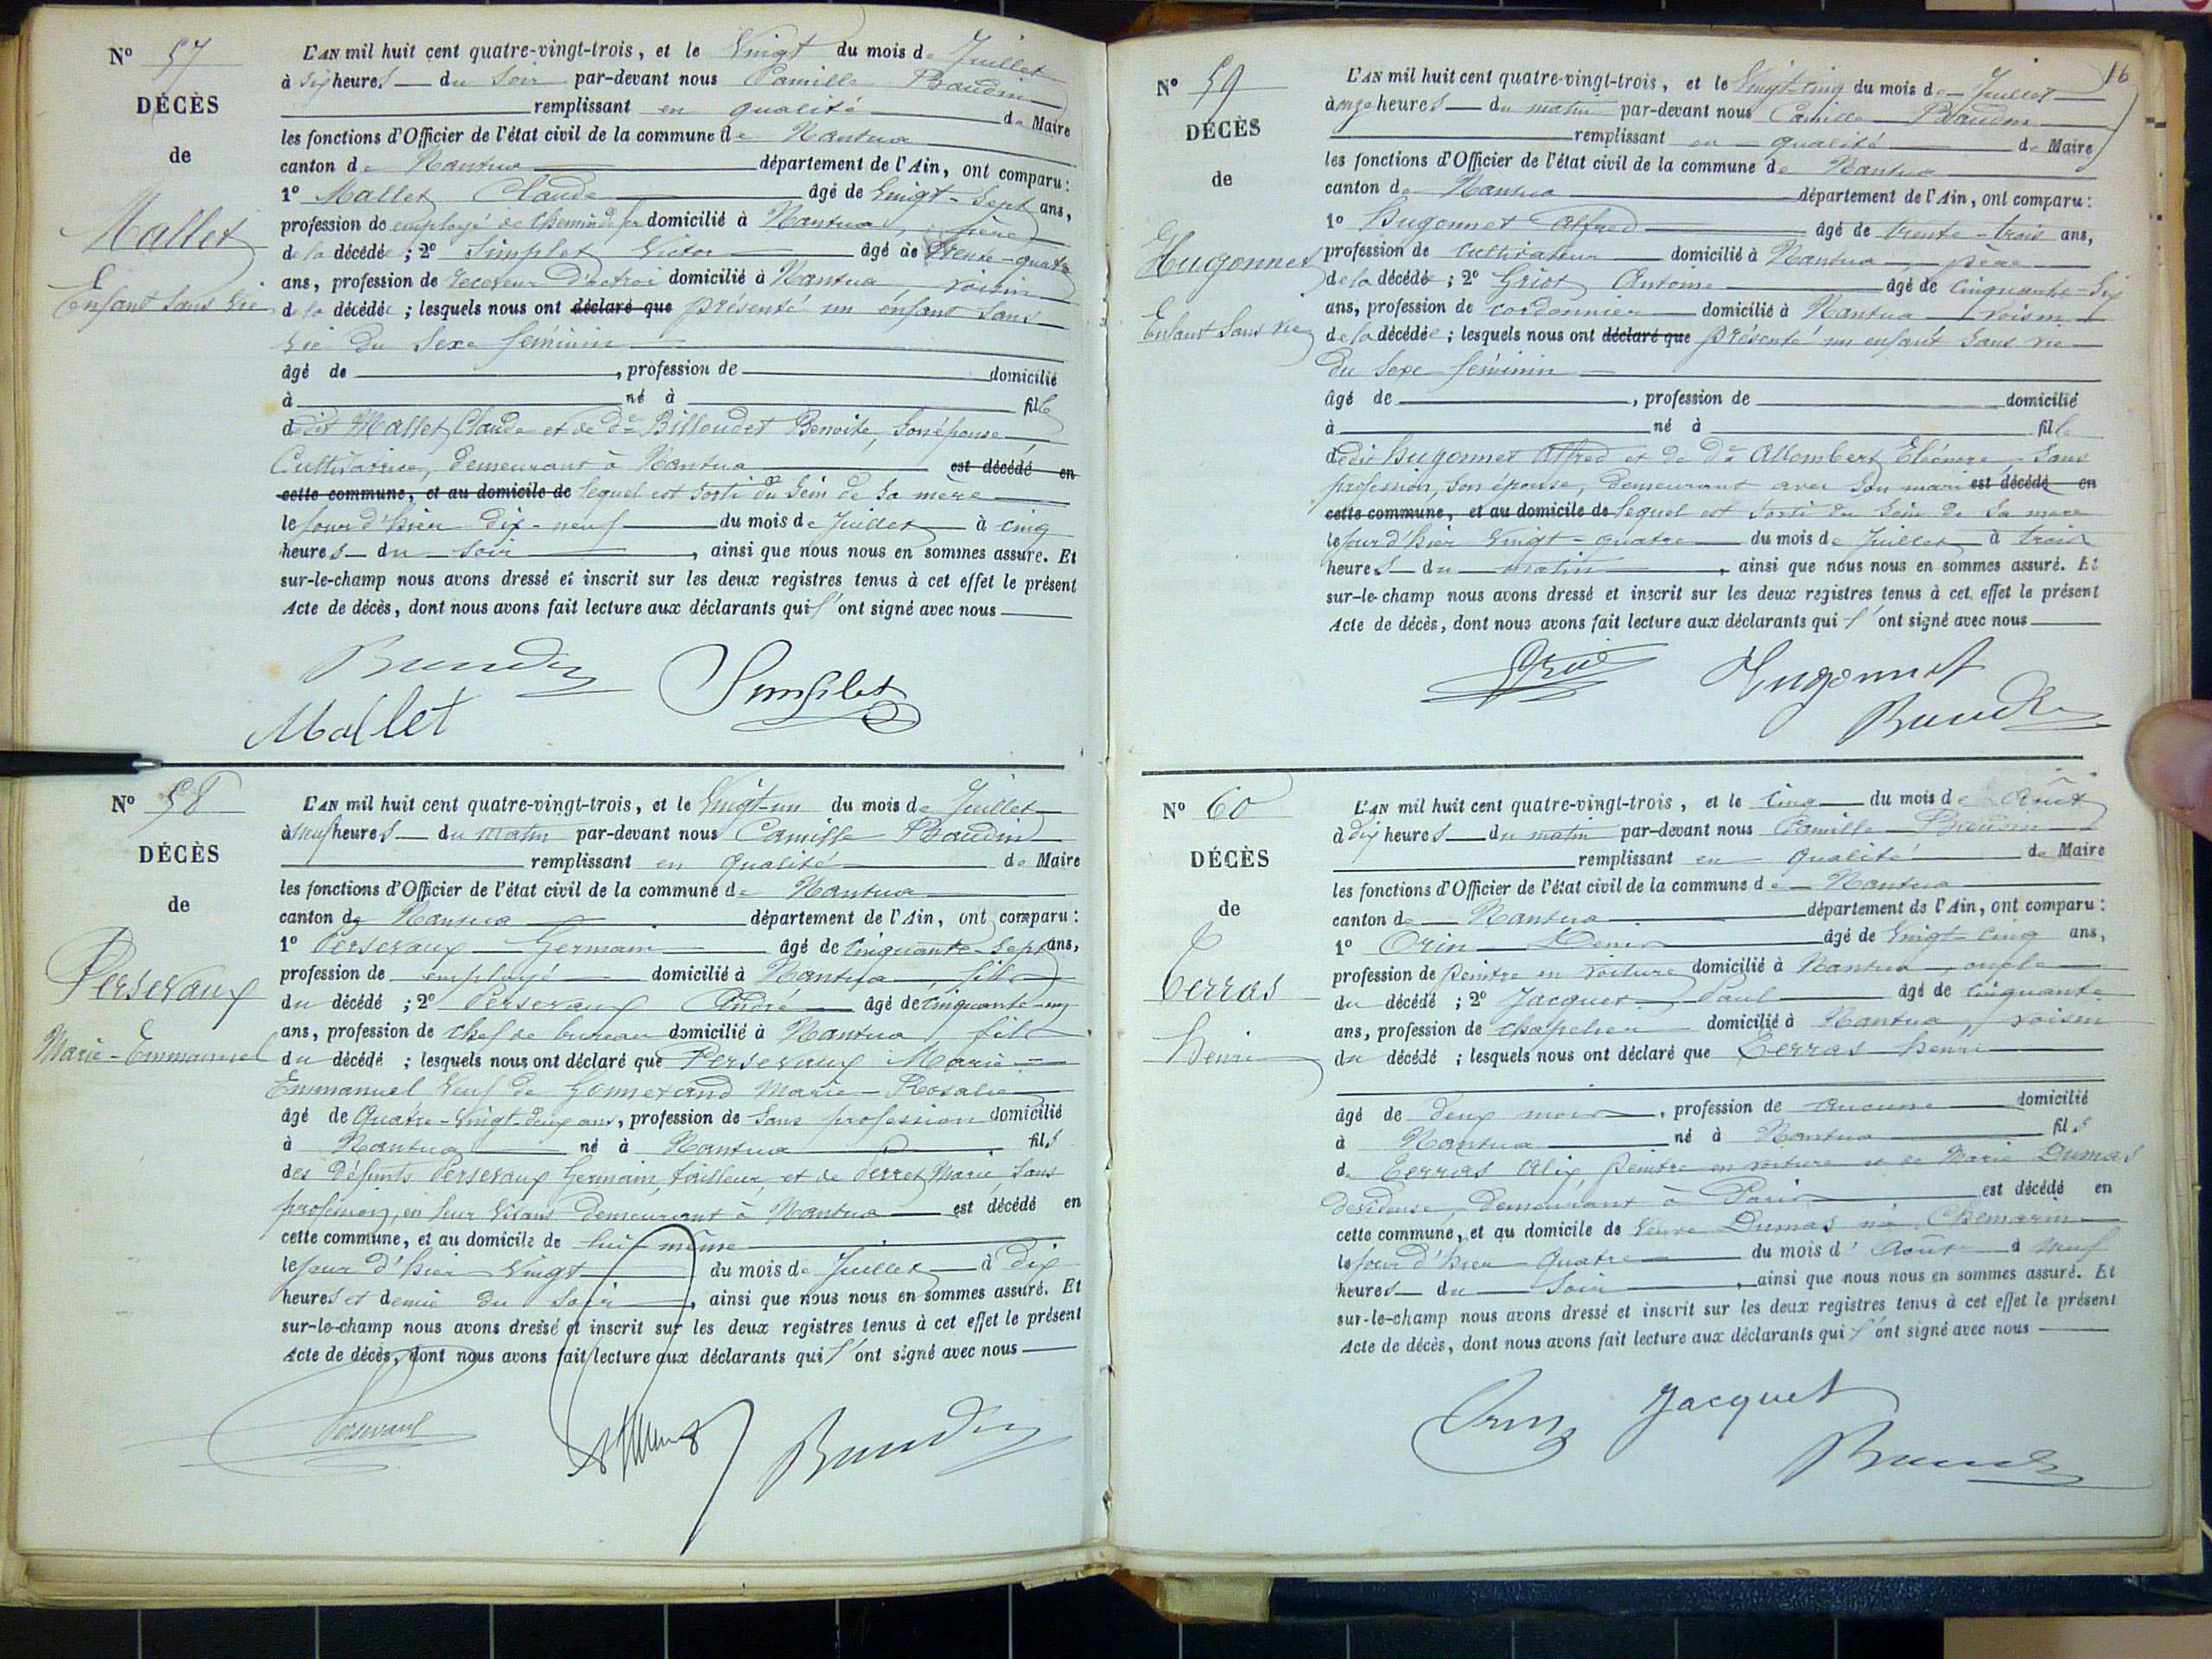 N° 57
DÉCÈS
de
Mallet
Enfant sans vie
L'AN mil huit cent quatre-vingt-trois, et le Vingt du mois de Juillet
à six heures du soir par-devant nous Camille Baudin
remplissant en qualité de Maire
les fonctions d'Officier de l'état civil de la commune de Nantua
canton de Nantua département de l'Ain, ont comparu :
1° Mallet Claude âgé de Vingt-sept ans,
profession de employé de chemin de fer domicilié à Nantua, père
de la décédée ; 2° Simplet Victor âgé de trente-quatre
ans, profession de receveur d'octroi domicilié à Nantua, voisin
de la décédée ; lesquels nous ont déclaré que présenté un enfant sans
vie du sexe féminin
âgé de , profession de domicilié
à né à fille
dudit Mallet Claude et de De Billoudet Benoite, son épouse
Cultivatrice, demeurant à Nantua est décédé en
cette commune, et au domicile de lequel est sorti du sein de sa mère
le jour d'hier dix-neuf du mois de Juillet à cinq
heures du soir , ainsi que nous nous en sommes assuré. Et
sur-le-champ nous avons dressé et inscrit sur les deux registres tenus à cet effet le présent
Acte de décès, dont nous avons fait lecture aux déclarants qui l'ont signé avec nous
Baudin
Simplet
Mallet
N° 58
DÉCÈS
de
Persevaux
Marie-Emmanuel
L'AN mil huit cent quatre-vingt-trois, et le Vingt-un du mois de Juillet
à neuf heures du matin par-devant nous Camille Baudin
remplissant en qualité de Maire
les fonctions d'Officier de l'état civil de la commune de Nantua
canton de Nantua département de l'Ain, ont comparu :
1° Persevaux Germain âgé de cinquante-sept ans,
profession de employé domicilié à Nantua, fils
du décédé ; 2° Persevaux André âgé de cinquante-un
ans, profession de chef de bureau domicilié à Nantua, fils
du décédé ; lesquels nous ont déclaré que Persevaux Marie-
Emmanuel veuf de Marie-Rosalie
âgé de Quatre-vingt-deux ans, profession de sans profession domicilié
à Nantua né à Nantua fils
des défunts Persevaux Germain, tailleur, et de Perret Marie, sans
profession, en leur vivant demeurant à Nantua est décédé en
cette commune, et au domicile de lui-même
le jour d'hier Vingt du mois de Juillet à dix
heures et demie du soir , ainsi que nous nous en sommes assuré. Et
sur-le-champ nous avons dressé et inscrit sur les deux registres tenus à cet effet le présent
Acte de décès, dont nous avons fait lecture aux déclarants qui l'ont signé avec nous
Persevaux
Baudin
16
N° 59
DÉCÈS
de
Hugonnet
Enfant sans vie
L'AN mil huit cent quatre-vingt-trois, et le Vingt-cinq du mois de Juillet
à onze heures du matin par-devant nous Camille Baudin
remplissant en qualité de Maire
les fonctions d'Officier de l'état civil de la commune de Nantua
canton de Nantua département de l'Ain, ont comparu :
1° Hugonnet Alfred âgé de trente-trois ans,
profession de cultivateur domicilié à Nantua, père
de la décédée ; 2° Griot Antoine âgé de cinquante-six
ans, profession de cordonnier domicilié à Nantua, voisin
de la décédée ; lesquels nous ont déclaré que présenté un enfant sans vie
du sexe féminin
âgé de , profession de domicilié
à né à fille
dudit Hugonnet Alfred et de De Allombert Eléonore, sans
profession, son épouse, demeurant avec son mari est décédé en
cette commune, et au domicile de lequel est sorti du sein de sa mère
le jour d'hier Vingt-quatre du mois de Juillet à trois
heures du matin , ainsi que nous nous en sommes assuré. Et
sur-le-champ nous avons dressé et inscrit sur les deux registres tenus à cet effet le présent
Acte de décès, dont nous avons fait lecture aux déclarants qui l'ont signé avec nous
Hugonnet
Baudin
N° 60
DÉCÈS
de
Terras
Henri
L'AN mil huit cent quatre-vingt-trois, et le cinq du mois de Août
à dix heures du matin par-devant nous Camille Baudin
remplissant en qualité de Maire
les fonctions d'Officier de l'état civil de la commune de Nantua
canton de Nantua département de l'Ain, ont comparu :
1° Orin Denis âgé de Vingt-cinq ans,
profession de peintre en voiture domicilié à Nantua, oncle
du décédé ; 2° Jacquet Paul âgé de cinquante
ans, profession de chapelier domicilié à Nantua, voisin
du décédé ; lesquels nous ont déclaré que Terras Henri
âgé de deux mois , profession de aucune domicilié
à Nantua né à Nantua fils
de Terras Alix, peintre en voiture et de Marie Dumas
devideuse, demeurant à Paris est décédé en
cette commune, et au domicile de Veuve Dumas née Chemarin
le jour d'hier quatre du mois d'Août à neuf
heures du soir , ainsi que nous nous en sommes assuré. Et
sur-le-champ nous avons dressé et inscrit sur les deux registres tenus à cet effet le présent
Acte de décès, dont nous avons fait lecture aux déclarants qui l'ont signé avec nous
Orin
Jacquet
Baudin